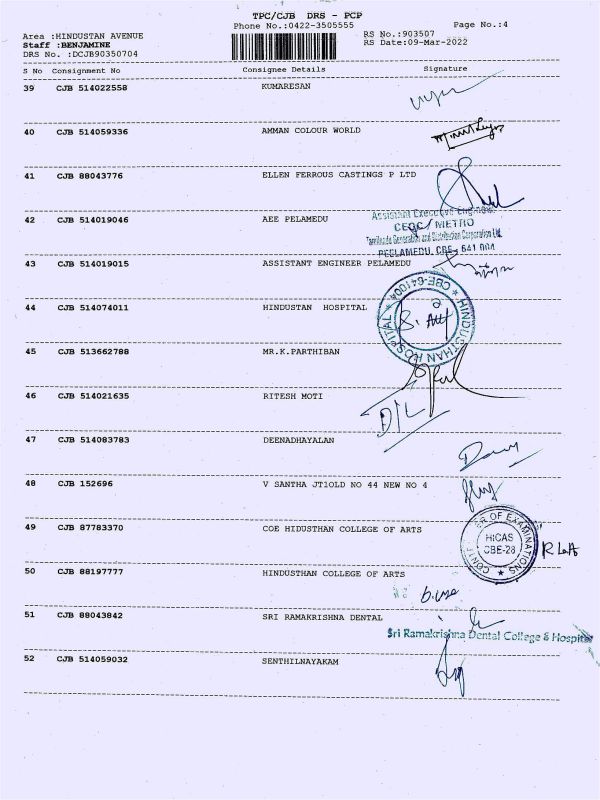 TPC/CJB DRS - PCP
Phone No.:0422-3505555
Page No.:4
Area :HINDUSTAN AVENUE
RS No.:903507
Staff :BENJAMINE
RS Date:09-Mar-2022
DRS No. :DCJB90350704
S No Consignment No Consignee Details Signature
39 CJB 514022558 KUMARESAN
40 CJB 514059336 AMMAN COLOUR WORLD
41 CJB 88043776 ELLEN FERROUS CASTINGS P LTD
Assistant Executive Engineer
42 CJB 514019046 AEE PELAMEDU
CEDC/METRO
Tamilnadu Generation and Distribution Corporation Ltd.
PEELAMEDU, CBE- 641 004
43 CJB 514019015 ASSISTANT ENGINEER PELAMEDU
44 CJB 514074011 HINDUSTAN HOSPITAL
HINDUSTHAN HOSPITAL ★ CBE-641004 ★
45 CJB 513662788 MR.K.PARTHIBAN
46 CJB 514021635 RITESH MOTI
47 CJB 514083783 DEENADHAYALAN
48 CJB 152696 V SANTHA JT1OLD NO 44 NEW NO 4
49 CJB 87783370 COE HIDUSTHAN COLLEGE OF ARTS
HICAS
CBE-28
50 CJB 88197777 HINDUSTHAN COLLEGE OF ARTS
51 CJB 88043842 SRI RAMAKRISHNA DENTAL
Sri Ramakrishna Dental College & Hospital
52 CJB 514059032 SENTHILNAYAKAM